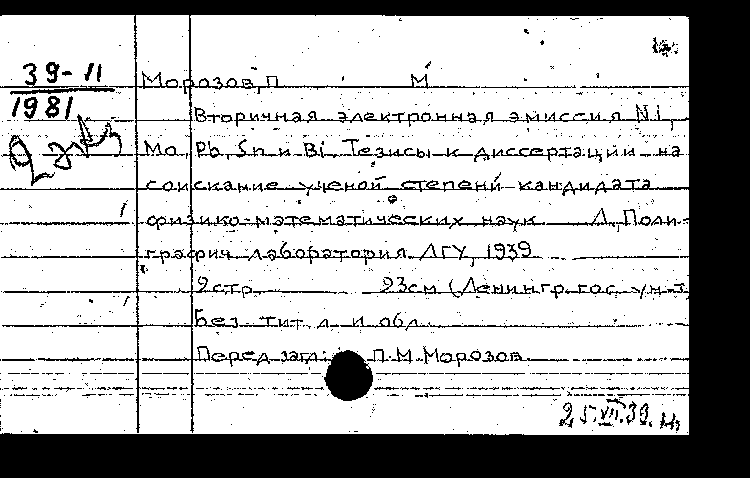 39-11
1981
2 экз
Морозов, П М
Вторичная электронная эмиссия Ni,
Mo, Pb, Sn и Bi. Тезисы к диссертации на
соискание ученой степени кандидата
физико-математических наук Л, Поли-
графич. лаборатория ЛГУ, 1939
2 стр. 23см (Ленингр. гос. ун-т)
Без тит л и обл.
Перед загл: П.М. Морозов
25.VII.39.